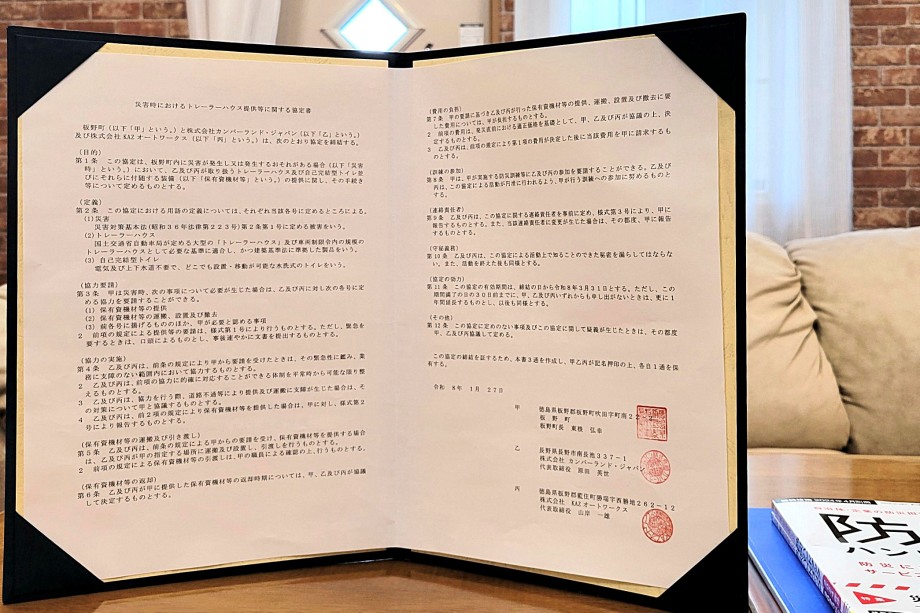 災害時におけるトレーラーハウス提供等に関する協定書
板野町（以下「甲」という。）と株式会社カンバーランド・ジャパン（以下「乙」という。）
及び株式会社KAZオートワークス（以下「丙」という。）は、次のとおり協定を締結する。
（目的）
第1条　この協定は、板野町内に災害が発生し又は発生するおそれがある場合（以下「災害
時」という。）において、乙及び丙が取り扱うトレーラーハウス及び自己完結型トイレ並
びにそれらに付随する装備（以下「保有資機材等」という。）の提供に関し、その手続き
等について定めるものとする。
（定義）
第2条　この協定における用語の定義については、それぞれ当該各号に定めるところによる。
(1)災害
災害対策基本法(昭和36年法律第223号)第2条第1号に定める被害をいう。
(2)トレーラーハウス
国土交通省自動車局が定める大型の「トレーラーハウス」及び車両制限令内の規模の
トレーラーハウスとして必要な基準に適合し、かつ建築基準法に準拠した製品をいう。
(3)自己完結型トイレ
電気及び上下水道不要で、どこでも設置・移動が可能な水洗式のトイレをいう。
（協力要請）
第3条　甲は災害時、次の事項について必要が生じた場合は、乙及び丙に対し次の各号に定
める協力を要請することができる。
(1) 保有資機材等の提供
(2) 保有資機材等の運搬、設置及び撤去
(3) 前各号に掲げるもののほか、甲が必要と認める事項
2　前項の規定による提供等の要請は、様式第1号により行うものとする。ただし、緊急を
要するときは、口頭によるものとし、事後速やかに文書を提出するものとする。
（協力の実施）
第4条　乙及び丙は、前条の規定により甲から要請を受けたときは、その緊急性に鑑み、業
務に支障のない範囲内において協力するものとする。
2　乙及び丙は、前項の協力に的確に対応することができる体制を平常時から可能な限り整
えるものとする。
3　乙及び丙は、協力を行う際、道路不通等により提供及び運搬に支障が生じた場合は、そ
の対策について甲と協議するものとする。
4　乙及び丙は、前2項の規定により保有資機材等を提供した場合は、甲に対し、様式第2
号により報告するものとする。
（保有資機材等の運搬及び引き渡し）
第5条　乙及び丙は、前条の規定による甲からの要請を受け、保有資機材等を提供する場合
は、乙及び丙が甲の指定する場所に運搬及び設置し、引渡しを行うものとする。
2　前項の規定による保有資機材等の引渡しは、甲の職員による確認の上、行うものとする。
（保有資機材等の返却）
第6条　乙及び丙が甲に提供した保有資機材等の返却時期については、甲、乙及び丙が協議
して決定するものとする。
（費用の負担）
第7条　甲の要請に基づき乙及び丙が行った保有資機材等の提供、運搬、設置及び撤去に要
した費用については、甲が負担するものとする。
2　前項の費用は、発災直前における適正価格を基礎として、甲、乙及び丙が協議の上、決
定するものとする。
3　乙及び丙は、前項の規定により第1項の費用が決定した後に当該費用を甲に請求するも
のとする。
（訓練の参加）
第8条　甲は、甲が実施する防災訓練等に乙及び丙の参加を要請することができる。乙及び
丙は、この協定による活動が円滑に行われるよう、甲が行う訓練への参加に努めるものと
する。
（連絡責任者）
第9条　乙及び丙は、この協定に関する連絡責任者を事前に定め、様式第3号により、甲に
報告するものとする。また、当該連絡責任者に変更が生じた場合は、その都度、甲に報告
するものとする。
（守秘義務）
第10条　乙及び丙は、この協定による活動上で知ることのできた秘密を漏らしてはならな
い。また、活動を終えた後も同様とする。
（協定の効力）
第11条　この協定の有効期間は、締結の日から令和8年3月31日とする。ただし、この
期間満了の日の30日前までに、甲、乙及び丙いずれからも申し出がないときは、更に1
年間延長するものとし、以後も同様とする。
（その他）
第12条　この協定に定めのない事項及びこの協定に関して疑義が生じたときは、その都度
甲、乙及び丙協議して定める。
この協定の締結を証するため、本書3通を作成し、甲乙丙が記名押印の上、各自1通を保
有する。
令和　8年　1月　27日
甲　徳島県板野郡板野町吹田字町南2
板　野　町
板野町長　東根　弘幸
乙　長野県長野市南長池337-1
株式会社 カンバーランド・ジャパン
代表取締役　原田　英世
丙　徳島県板野郡藍住町勝瑞字西勝地262-12
株式会社　KAZ オートワークス
代表取締役　山岸　一雄
防
ハン
防災に
サービ
特集